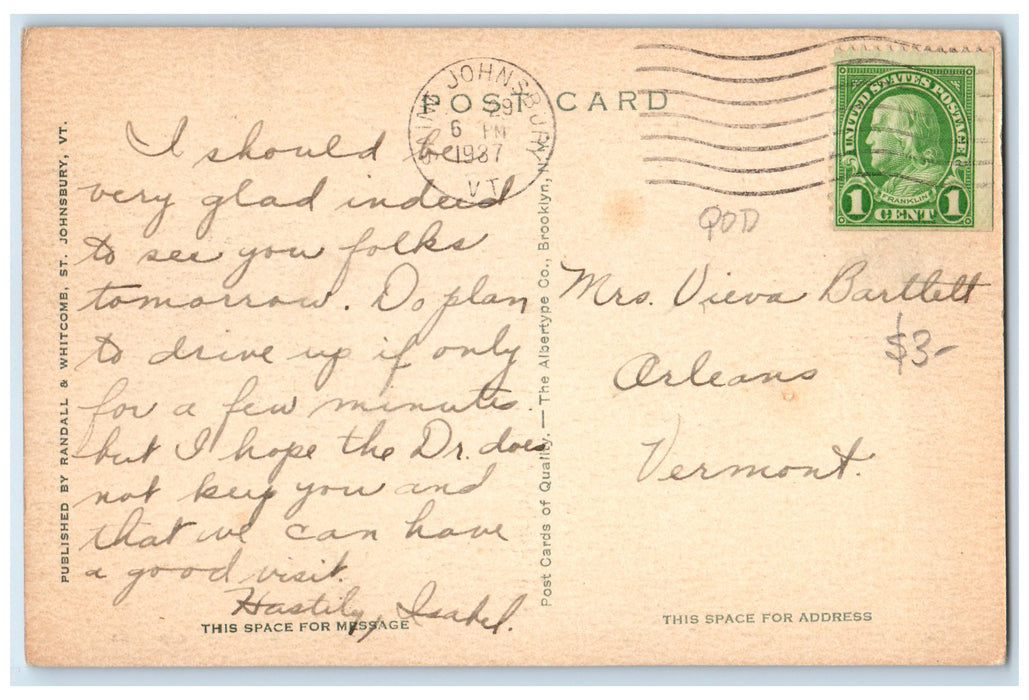 POST CARD
SAINT JOHNSBURY
29
6 PM
1937
VT.
UNITED STATES POSTAGE
FRANKLIN
1 CENT 1
I should be
very glad indeed
to see you folks
tomorrow. Do plan
to drive up if only
for a few minutes.
but I hope the Dr. does
not keep you and
that we can have
a good visit.
Hastily, Isabel.
THIS SPACE FOR MESSAGE
PUBLISHED BY RANDALL & WHITCOMB, ST. JOHNSBURY, VT.
Post Cards of Quality. — The Albertype Co., Brooklyn, N.Y.
Mrs. Vieva Bartlett
Orleans
Vermont.
$3-
THIS SPACE FOR ADDRESS